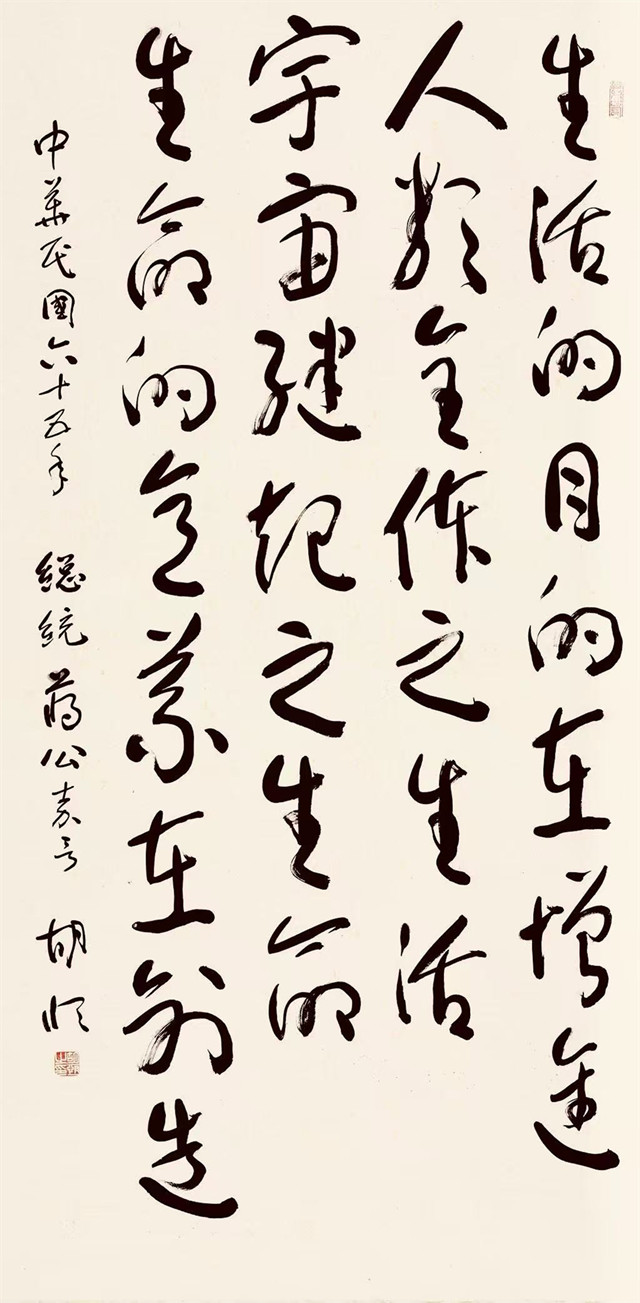 生活的目的在增進
人類全体之生活
宇宙繼起之生命
生命的意義在創造
中華民國六十五年 總統 蔣公嘉言 胡